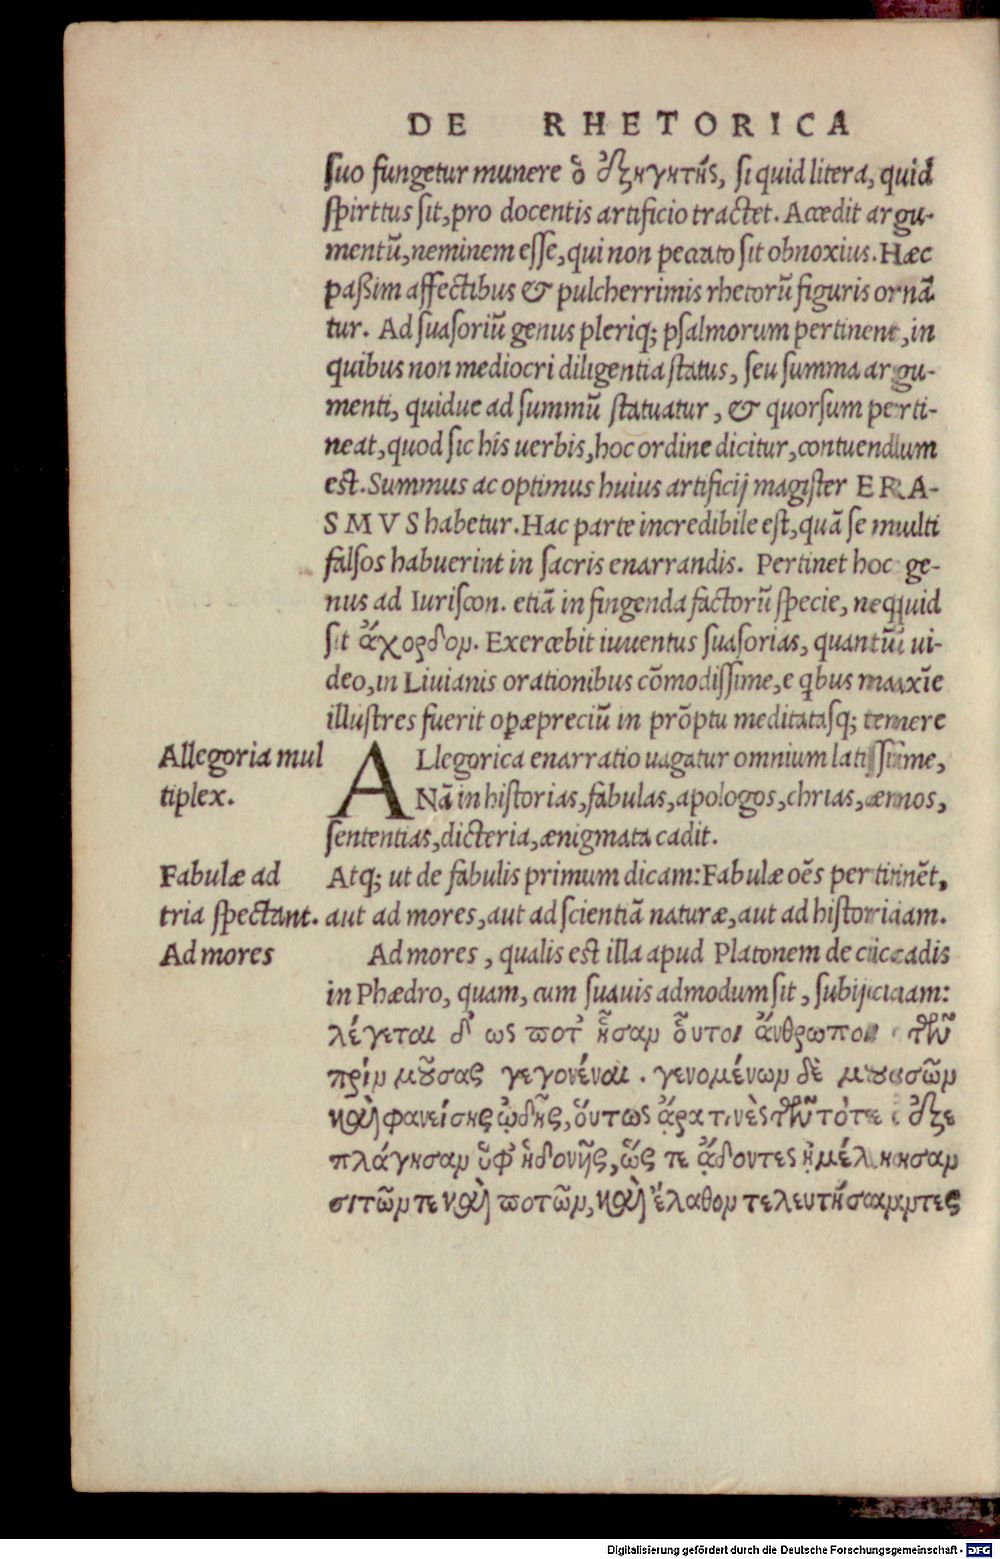 DE RHETORICA
suo fungetur munere ὁ ἐξηγητής, si quid litera, quid
spirttus sit, pro docentis artificio tractet. Accedit argu-
mentũ, neminem esse, qui non peccato sit obnoxius. Hæc
paßim affectibus & pulcherrimis rhetorũ figuris ornã
tur. Ad suasoriũ genus pleriq; psalmorum pertinent, in
quibus non mediocri diligentia status, seu summa argu-
menti, quidue ad summũ statuatur, & quorsum perti-
neat, quod sic his uerbis, hoc ordine dicitur, contuendum
est. Summus ac optimus huius artificij magister ERA-
SMVS habetur. Hac parte incredibile est, quã se multi
falsos habuerint in sacris enarrandis. Pertinet hoc ge-
nus ad Iuriscon. etiã in fingenda factorũ specie, nequid
sit ἄχορδον. Exercebit iuuentus suasorias, quantũ ui-
deo, in Liuianis orationibus cõmodissime, e qbus maxīe
illustres fuerit operæpreciũ in prõptu meditatasq; temere
Allegoria mul
tiplex.
ALlegorica enarratio uagatur omnium latissime,
Nã in historias, fabulas, apologos, chrias, æmos,
sententias, dicteria, ænigmata cadit.
Fabulæ ad
tria spectant.
Atq; ut de fabulis primum dicam: Fabulæ oēs pertinēt,
aut ad mores, aut ad scientiã naturæ, aut ad historiam.
Ad mores
Ad mores, qualis est illa apud Platonem de cicadis
in Phædro, quam, cum suauis admodum sit, subijciam:
λέγεται δ' ὡς ποτ' ἦσαν οὗτοι ἄνθρωποι τῶν
πρὶν μούσας γεγονέναι. γενομένων δὲ μουσῶν
καὶ φανείσης ᾠδῆς, οὕτως ἄρα τινὲς τῶν τότε ἐξε
πλάγησαν ὑφ' ἡδονῆς, ὥς τε ᾄδοντες ἠμέλησαν
σιτῶν τε καὶ ποτῶν, καὶ ἔλαθον τελευτήσαντες